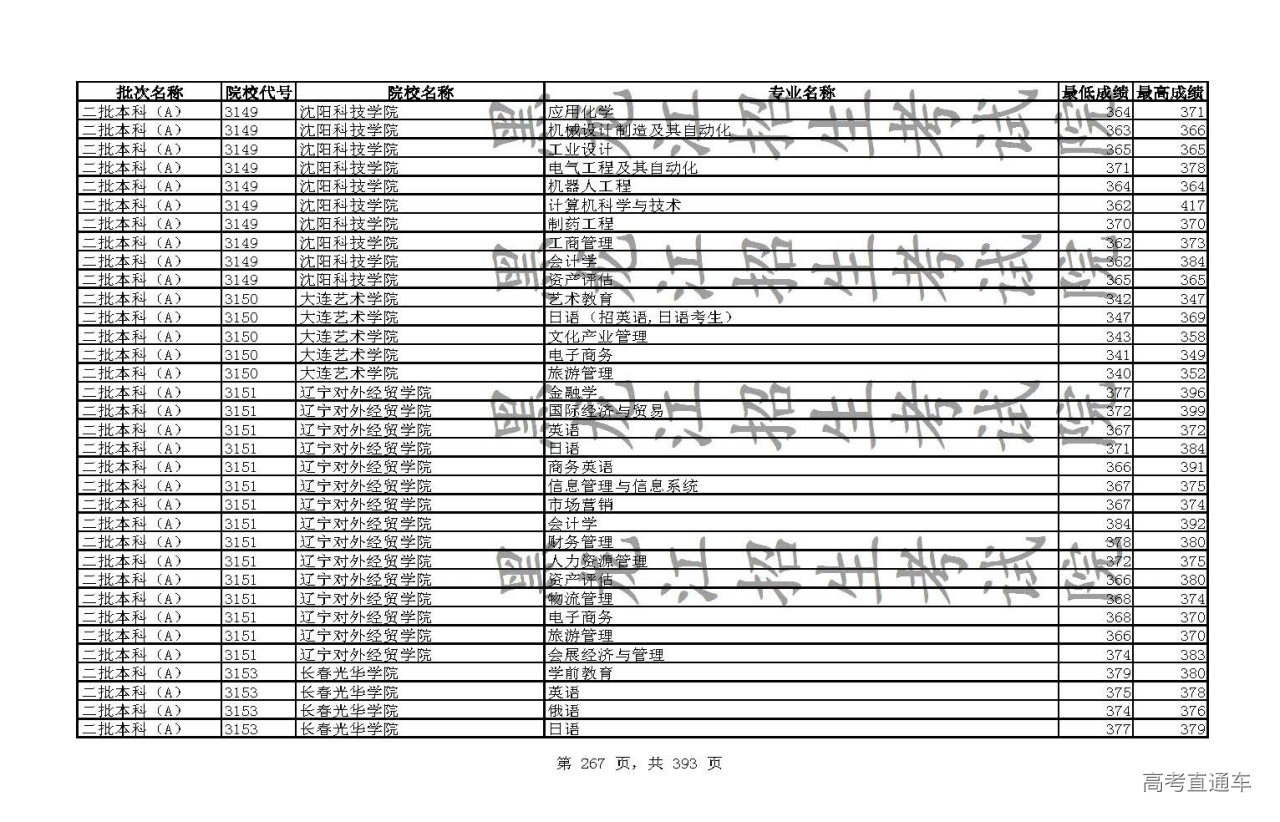 批次名称 院校代号 院校名称 专业名称 最低成绩 最高成绩
二批本科（A） 3149 沈阳科技学院 应用化学 364 371
二批本科（A） 3149 沈阳科技学院 机械设计制造及其自动化 363 366
二批本科（A） 3149 沈阳科技学院 工业设计 365 365
二批本科（A） 3149 沈阳科技学院 电气工程及其自动化 371 378
二批本科（A） 3149 沈阳科技学院 机器人工程 364 364
二批本科（A） 3149 沈阳科技学院 计算机科学与技术 362 417
二批本科（A） 3149 沈阳科技学院 制药工程 370 370
二批本科（A） 3149 沈阳科技学院 工商管理 362 373
二批本科（A） 3149 沈阳科技学院 会计学 362 384
二批本科（A） 3149 沈阳科技学院 资产评估 365 365
二批本科（A） 3150 大连艺术学院 艺术教育 342 347
二批本科（A） 3150 大连艺术学院 日语（招英语,日语考生） 347 369
二批本科（A） 3150 大连艺术学院 文化产业管理 343 358
二批本科（A） 3150 大连艺术学院 电子商务 341 349
二批本科（A） 3150 大连艺术学院 旅游管理 340 352
二批本科（A） 3151 辽宁对外经贸学院 金融学 377 396
二批本科（A） 3151 辽宁对外经贸学院 国际经济与贸易 372 399
二批本科（A） 3151 辽宁对外经贸学院 英语 367 372
二批本科（A） 3151 辽宁对外经贸学院 日语 371 384
二批本科（A） 3151 辽宁对外经贸学院 商务英语 366 391
二批本科（A） 3151 辽宁对外经贸学院 信息管理与信息系统 367 375
二批本科（A） 3151 辽宁对外经贸学院 市场营销 367 374
二批本科（A） 3151 辽宁对外经贸学院 会计学 384 392
二批本科（A） 3151 辽宁对外经贸学院 财务管理 378 380
二批本科（A） 3151 辽宁对外经贸学院 人力资源管理 372 375
二批本科（A） 3151 辽宁对外经贸学院 资产评估 366 380
二批本科（A） 3151 辽宁对外经贸学院 物流管理 368 374
二批本科（A） 3151 辽宁对外经贸学院 电子商务 368 370
二批本科（A） 3151 辽宁对外经贸学院 旅游管理 366 370
二批本科（A） 3151 辽宁对外经贸学院 会展经济与管理 374 383
二批本科（A） 3153 长春光华学院 学前教育 379 380
二批本科（A） 3153 长春光华学院 英语 375 378
二批本科（A） 3153 长春光华学院 俄语 374 376
二批本科（A） 3153 长春光华学院 日语 377 379
黑龙江招生考试院
黑龙江招生考试院
黑龙江招生考试院
黑龙江招生考试院
第 267 页，共 393 页
高考直通车